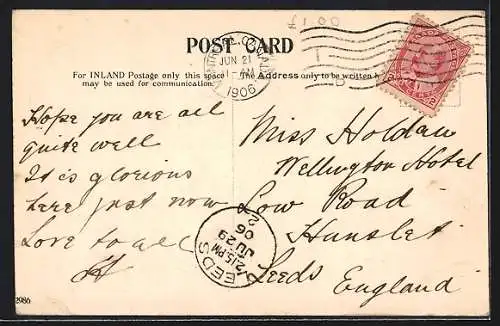 £1.00
POST CARD
JUN 21
1906
For INLAND Postage only this space
may be used for communication.
The Address only to be written
Hope you are all
quite well
It is glorious
here just now
Love to all
Miss Holdan
Wellington Hotel
Low Road
Hunslet
Leeds
England
LEEDS
2 15 PM
JU 29
06
2986